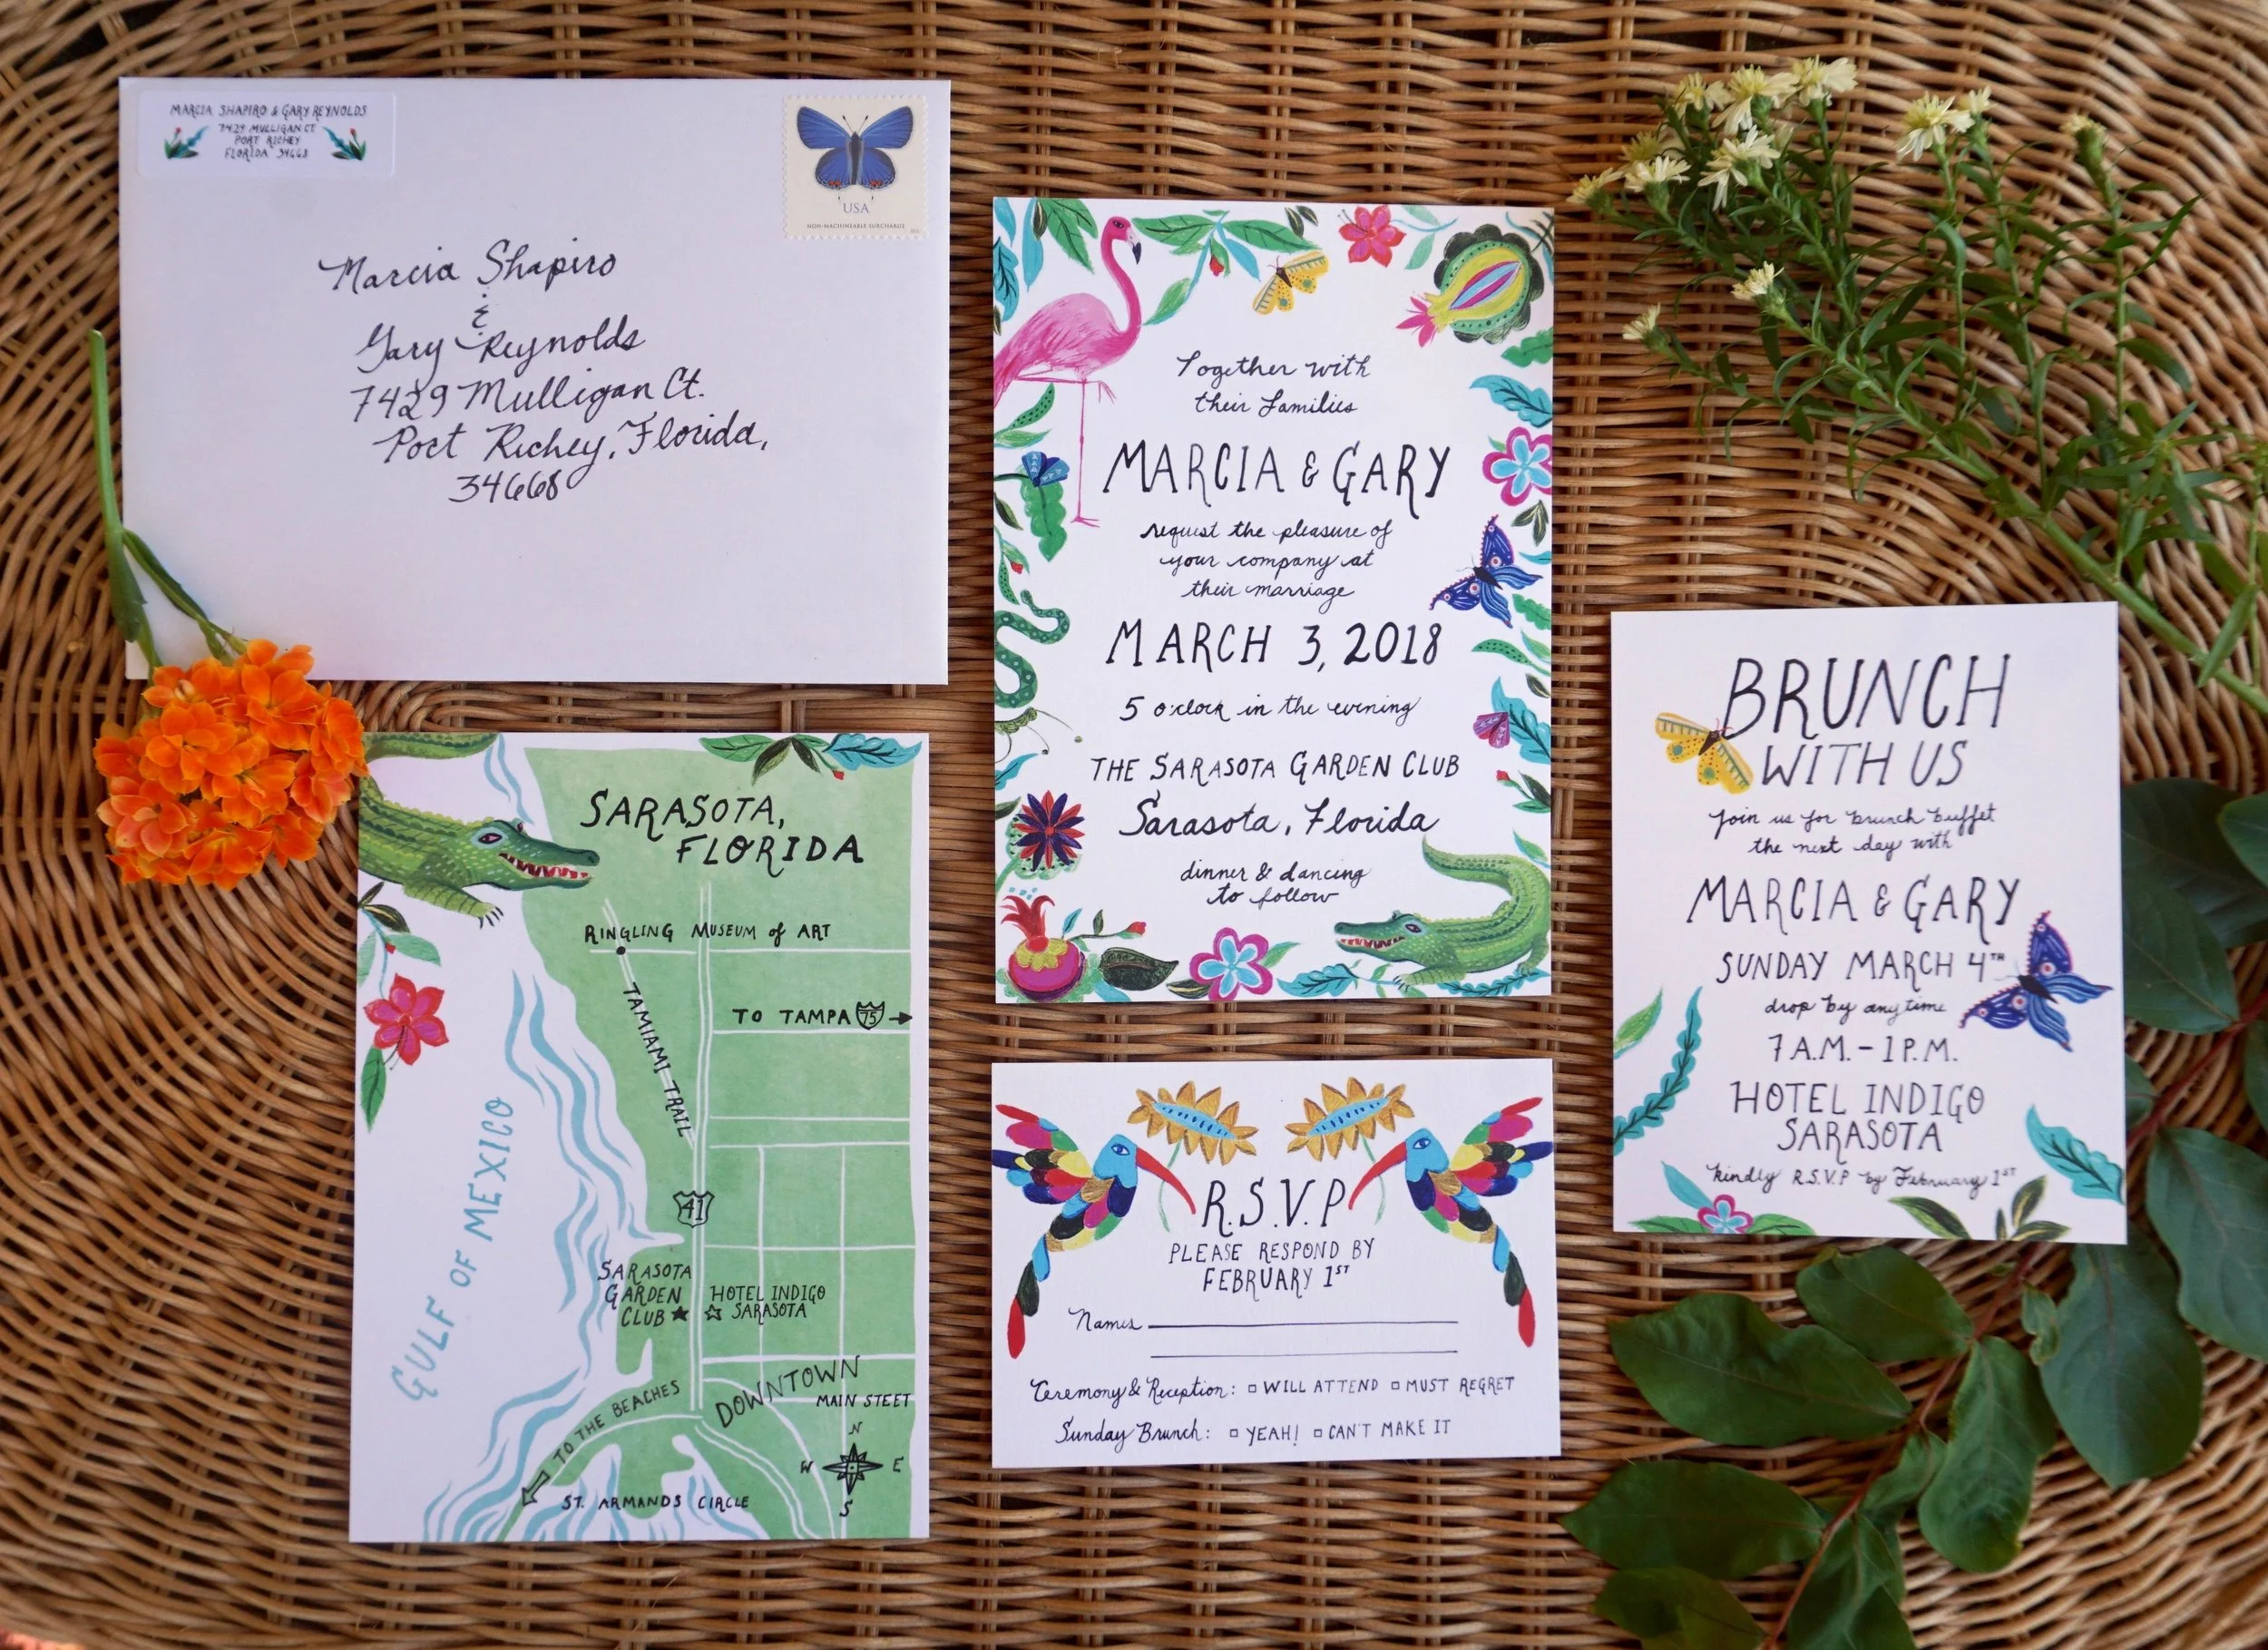 MARCIA SHAPIRO & GARY REYNOLDS
7429 MULLIGAN CT
PORT RICHEY
FLORIDA 34668
USA
NON-MACHINEABLE SURCHARGE
Marcia Shapiro
&
Gary Reynolds
7429 Mulligan Ct.
Port Richey, Florida,
34668
Together with
their families
MARCIA & GARY
request the pleasure of
your company at
their marriage
MARCH 3, 2018
5 o'clock in the evening
THE SARASOTA GARDEN CLUB
Sarasota, Florida
dinner & dancing
to follow
BRUNCH
WITH US
Join us for brunch buffet
the next day with
MARCIA & GARY
SUNDAY MARCH 4TH
drop by anytime
7 A.M. - 1 P.M.
HOTEL INDIGO
SARASOTA
kindly R.S.V.P by February 1ST
SARASOTA,
FLORIDA
RINGLING MUSEUM of ART
TAMIAMI TRAIL
TO TAMPA 75
GULF OF MEXICO
41
SARASOTA
GARDEN
CLUB
HOTEL INDIGO
SARASOTA
TO THE BEACHES
DOWNTOWN
MAIN STEET
N
W E
S
ST. ARMANDS CIRCLE
R.S.V.P
PLEASE RESPOND BY
FEBRUARY 1ST
Names
Ceremony & Reception: WILL ATTEND MUST REGRET
Sunday Brunch: YEAH! CAN'T MAKE IT